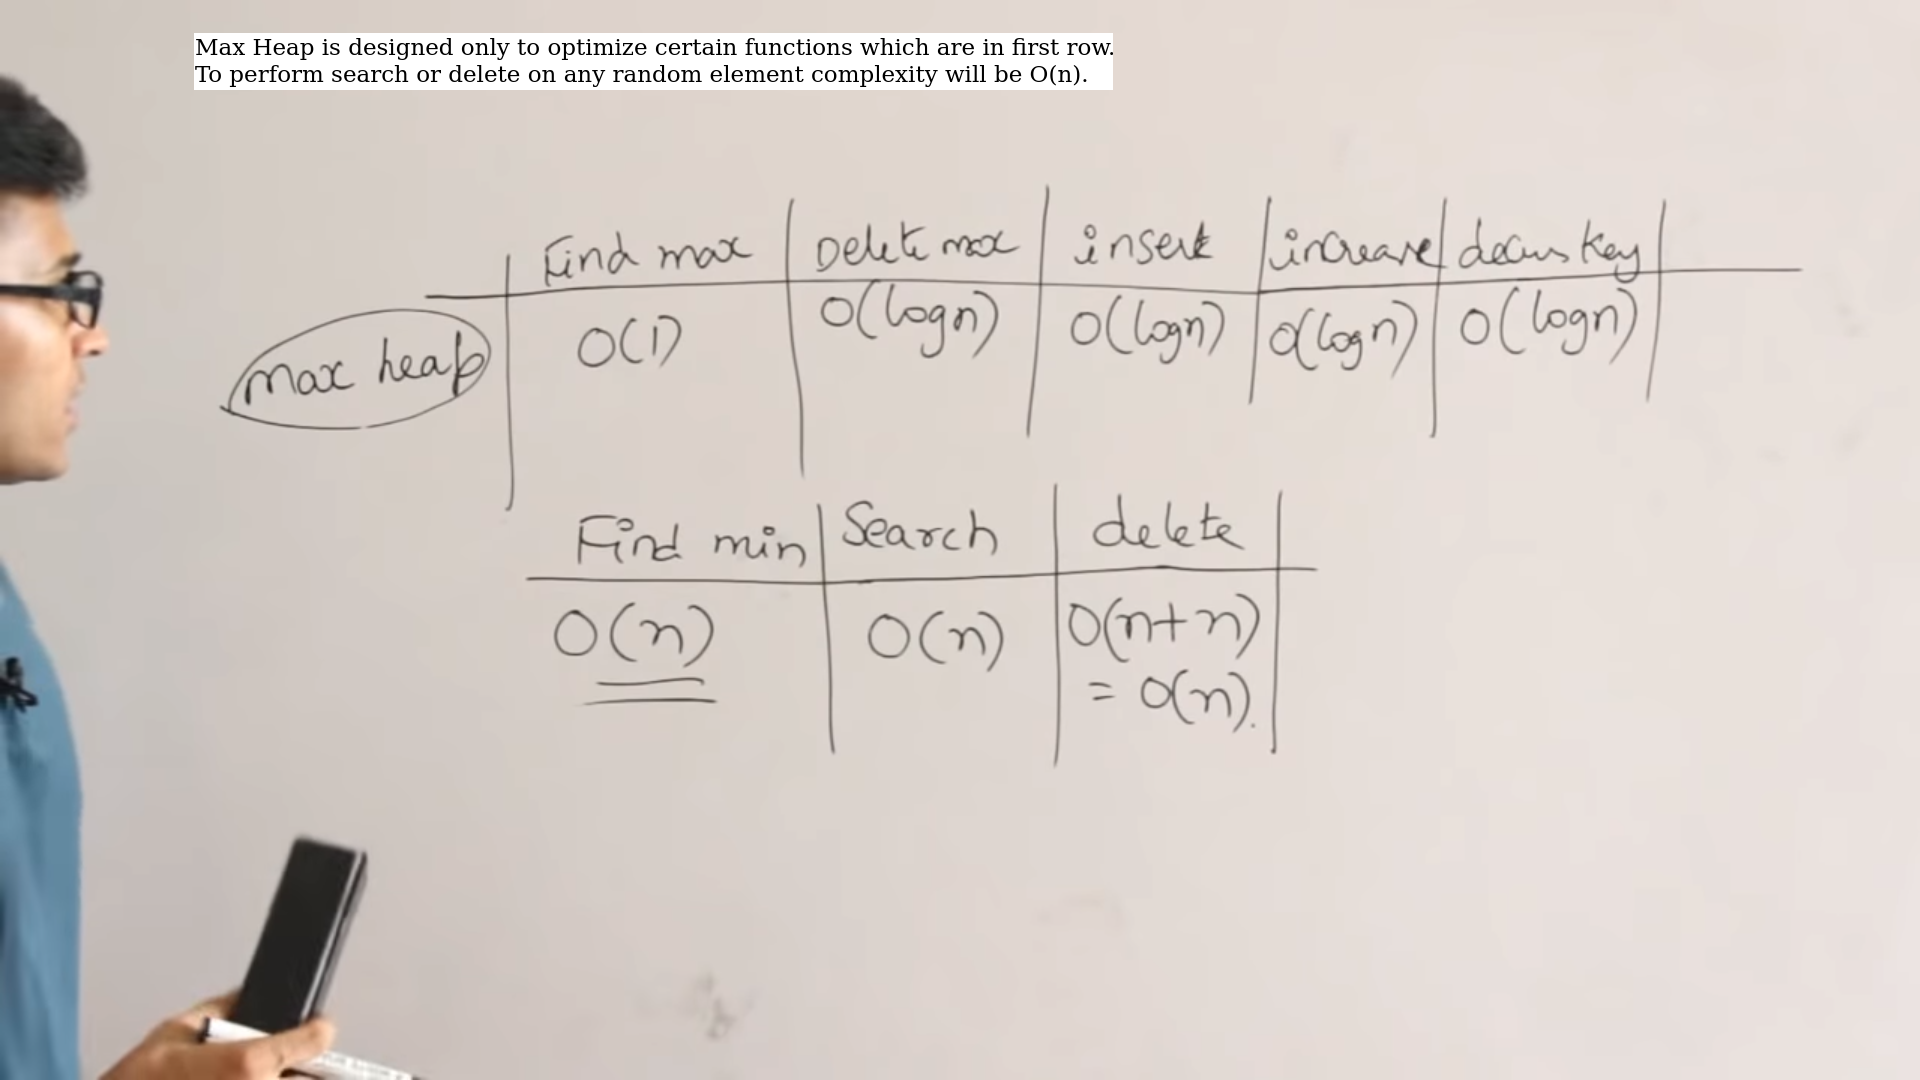 Max Heap is designed only to optimize certain functions which are in first row.
To perform search or delete on any random element complexity will be O(n).
Find max Delete max insert increase decrs key
max heap O(1) O(logn) O(logn) O(logn) O(logn)
Find min Search delete
O(n) O(n) O(n+n)
= O(n).